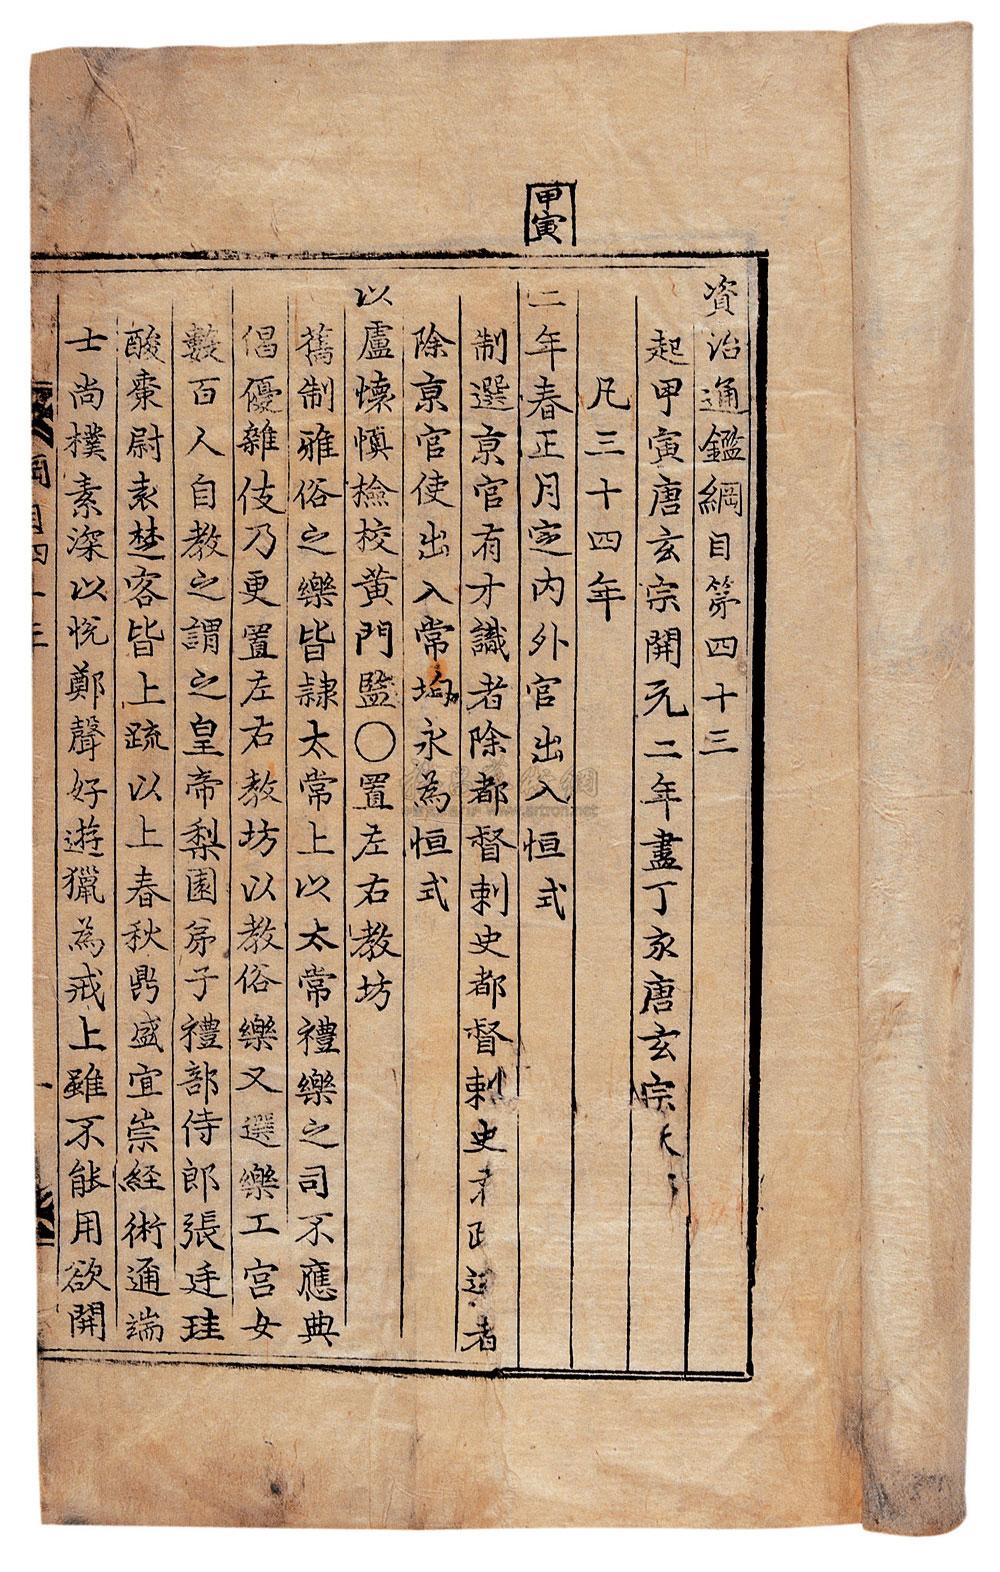 甲寅
資治通鑑綱目第四十三
起甲寅唐玄宗開元二年盡丁亥唐玄宗天
凡三十四年
二年春正月定內外官出入恒式
制選京官有才識者除都督刺史都督刺史有政迹者
除京官使出入常均永為恒式
以盧懷慎檢校黃門監○置左右教坊
舊制雅俗之樂皆隷太常上以太常禮樂之司不應典
倡優雜伎乃更置左右教坊以教俗樂又選樂工宮女
數百人自教之謂之皇帝梨園弟子禮部侍郎張廷珪
酸棗尉袁楚客皆上疏以上春秋鼎盛宜崇經術通端
士尚樸素深以悅鄭聲好遊獵為戒上雖不能用欲開
綱目四十三
一